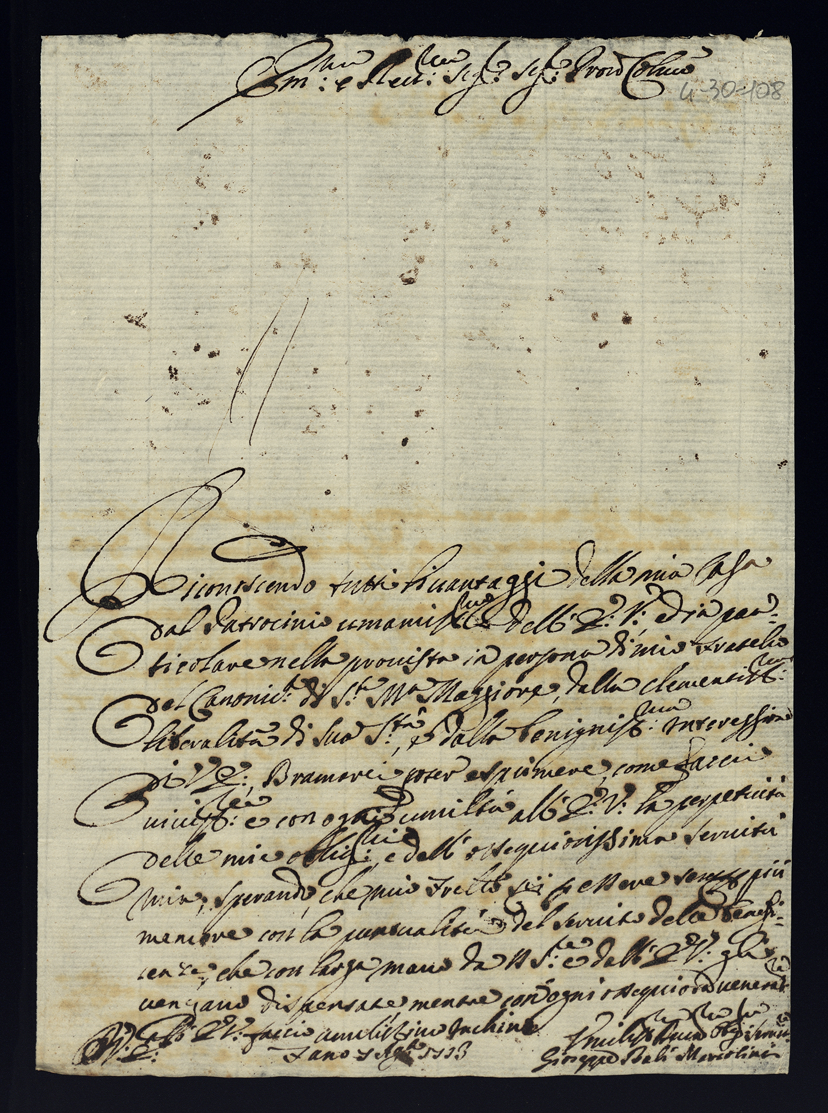 Em.mo e Reu.mo Sig.r Sig.r Prõn Col.mo
4-30-108
Riconoscendo tutti li uantaggi della mia Casa
dal Patrocinio umaniss.mo dell' E. V., ed in par-
ticolare nella prouista in persona di mio Fratello
del Canonic.to di S.ta M.a Maggiore, dalla clementiss.ma
liberalità di Sua S.tà, e dalla benigniss.ma Interessione
di V. E., Bramarei poter esprimere, come faccio
uiuiss.te e con ogni umiltà all' E. V. la perpetuità
delle mie oblig.ni, e dell' ossequiosissima seruitù
mia; sperando, che mio Frello sij p essere sempre più
memore con la puntualità del seruito delle Benefi-
cenze, che con larga mano da N S.re e dall' E. V. gli
uengano dispensate mentre con ogni ossequiosa uenerat.ne
all' E. V. faccio umilissimo Inchino
Di V. E.
Fano 7 Ag.to 1713
Vmiliss.mo Diuo.mo Obl.mo Seruit.re
Giuseppe Balì Marcolini